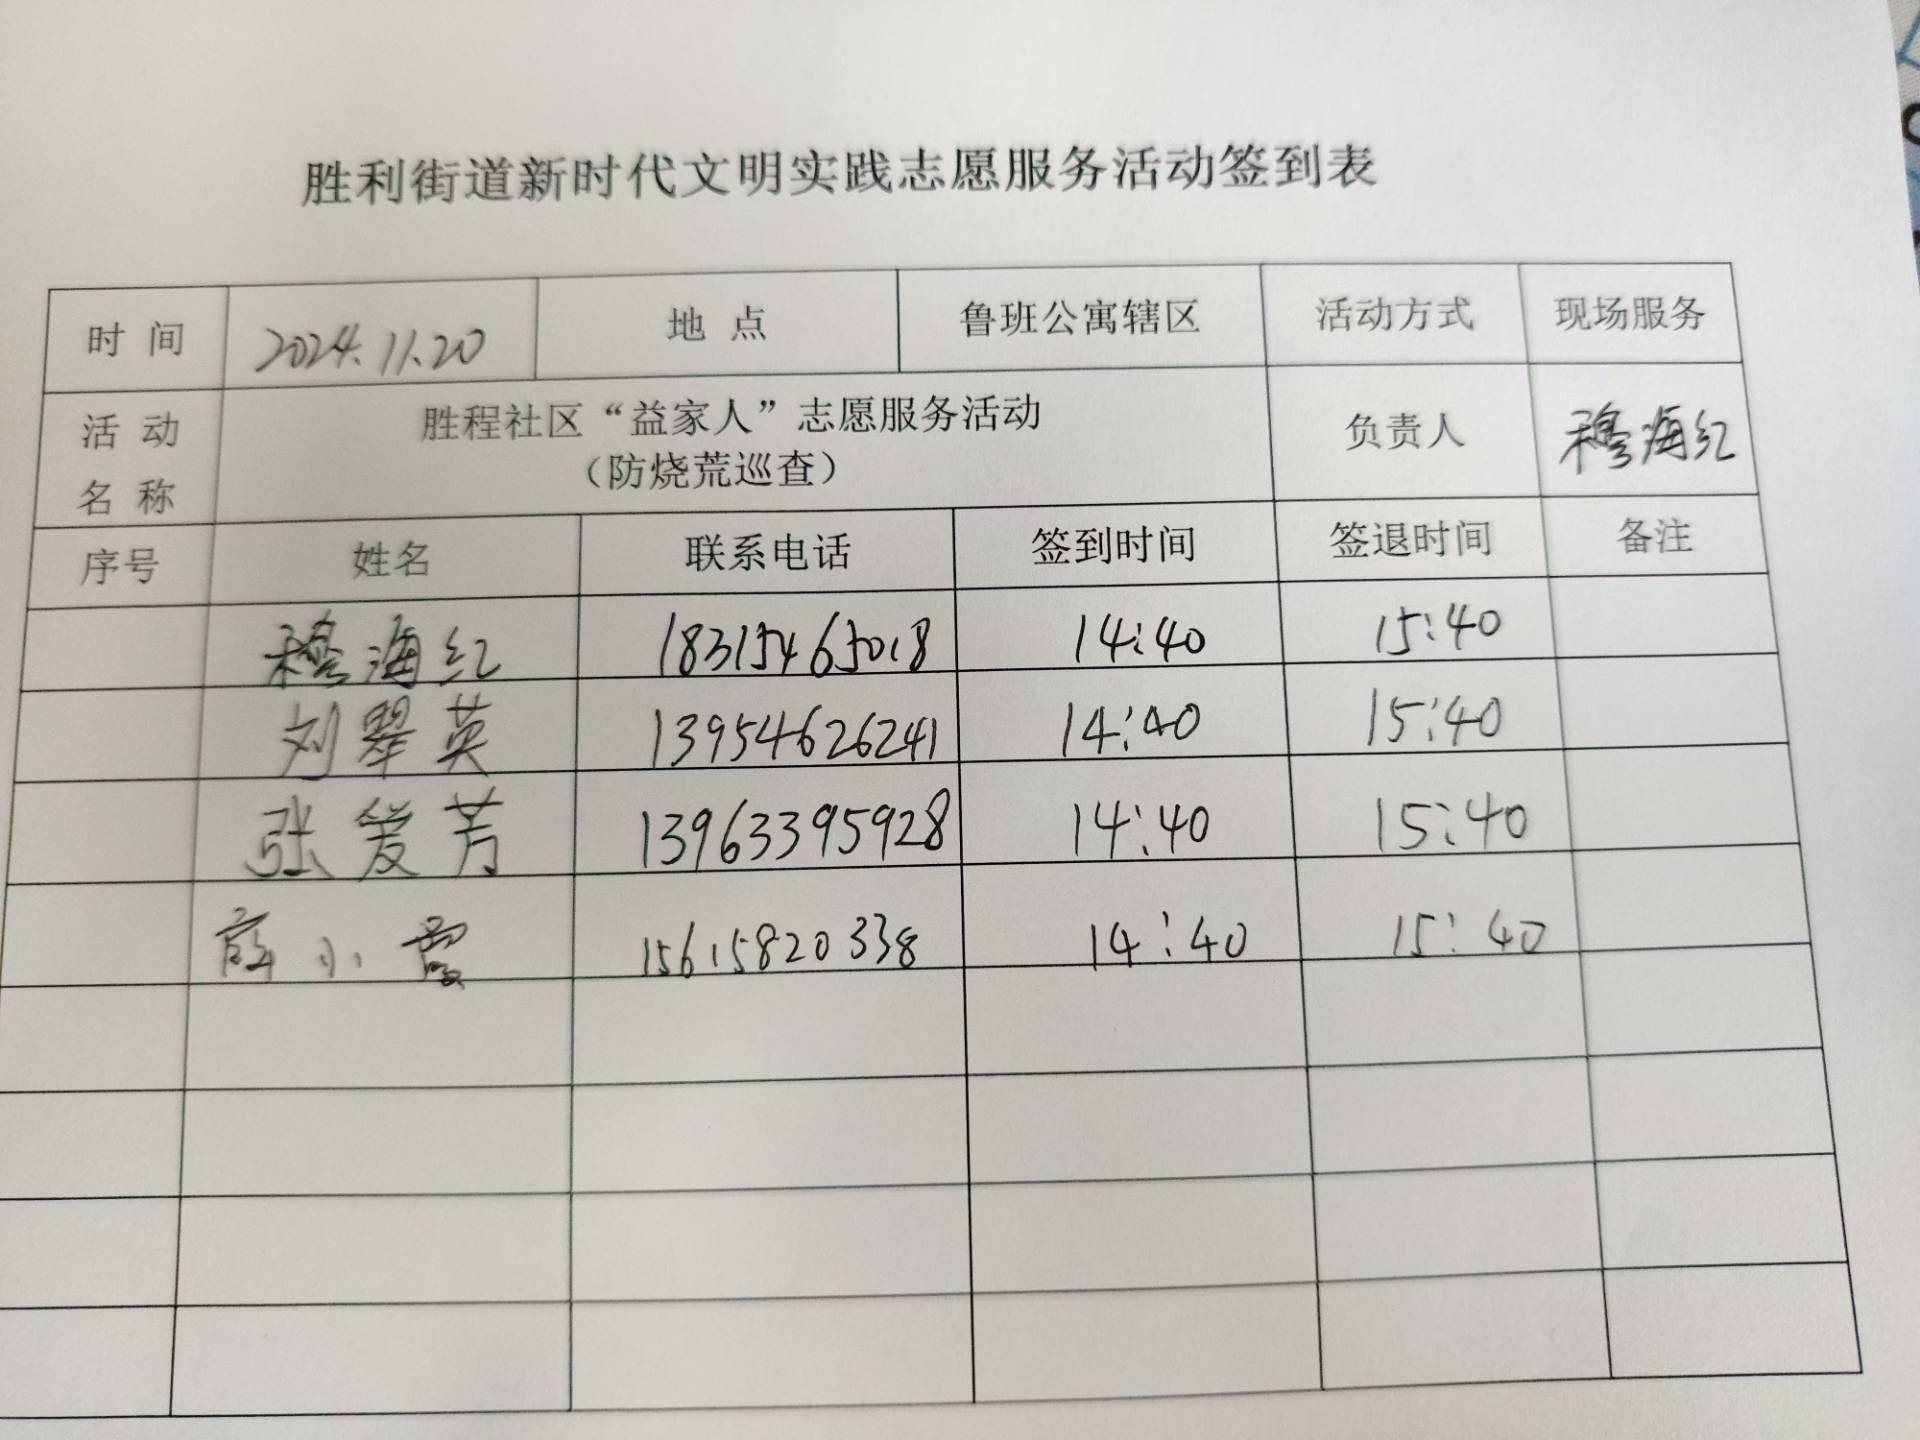 胜利街道新时代文明实践志愿服务活动签到表
时 间 2024.11.20 地 点 鲁班公寓辖区 活动方式 现场服务
活 动 名 称 胜程社区“益家人”志愿服务活动 负责人 穆海红
（防烧荒巡查）
序号 姓名 联系电话 签到时间 签退时间 备注
穆海红 18315465018 14:40 15:40
刘翠英 13954626241 14:40 15:40
张爱芳 13963395928 14:40 15:40
薛小霞 15615820338 14:40 15:40